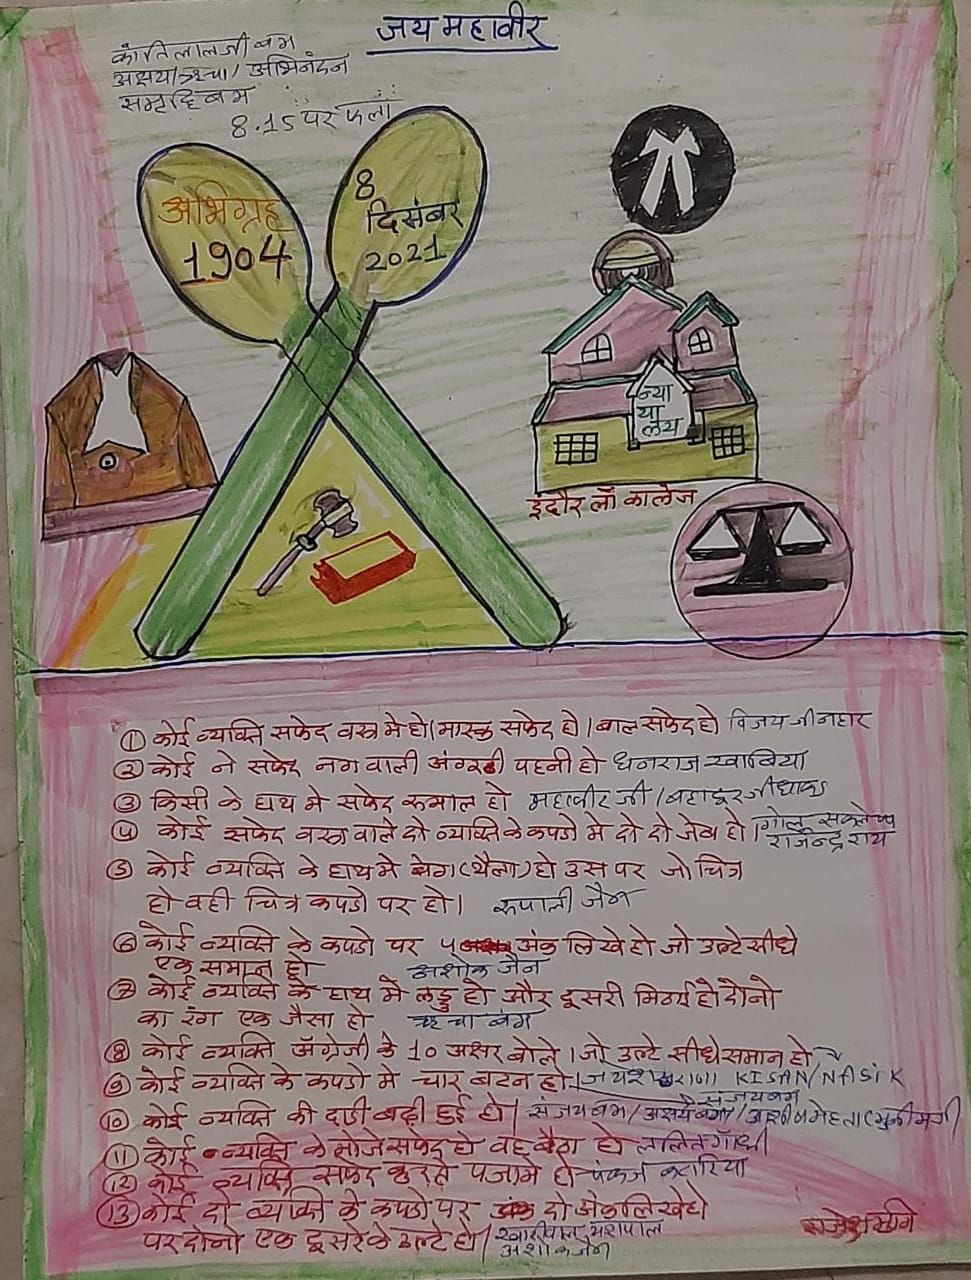 जय महावीर
कांतिलालजी बम
अक्षय/ऋचा/ अभिनंदन
समृद्धि बम
8.15 पर फला
अभिग्रह
1904
8
दिसंबर
2021
न्या
या
लय
इंदौर लॉ कालेज
① कोई व्यक्ति सफेद वस्त्र मे हो। मास्क सफेद हो। बाल सफेद हो विजय जी नहार
② कोई ने सफेद नग वाली अंगूठी पहनी हो धनराज खाबिया
③ किसी के हाथ मे सफेद रुमाल हो महावीर जी / बहादूर जी
④ कोई सफेद वस्त्र वाले दो व्यक्ति के कपडो मे दो दो जेब हो। गोलू
राजेन्द्र राय
⑤ कोई व्यक्ति के हाथ मे बेग (थैला) हो उस पर जो चित्र
हो वही चित्र कपडो पर हो। रुपाली जैन
⑥ कोई व्यक्ति के कपडो पर ५ अंक लिखे हो जो उल्टे सीधे
एक समान हो अशोक जैन
⑦ कोई व्यक्ति के हाथ मे लड्डू हो और दूसरी मिठाई हो दोनो
का रंग एक जैसा हो ऋचा बम
⑧ कोई व्यक्ति अँग्रेजी के 10 अक्षर बोले। जो उल्टे सीधे समान हो
⑨ कोई व्यक्ति के कपडो मे चार बटन हो। KISAN/NASIK
संजय बम
⑩ कोई व्यक्ति की दाढी बढी हुई हो। संजय बम/ अक्षय बम/
⑪ कोई व्यक्ति के मोजे सफेद हो वह बैठा हो ललित गाँधी
⑫ कोई व्यक्ति सफेद कुरते पजामे हो पंकज कटारिया
⑬ कोई दो व्यक्ति के कपडो पर दो अंक लिखे हो
पर दोनो एक दूसरे के उल्टे हो। यशपाल
अशोक जैन